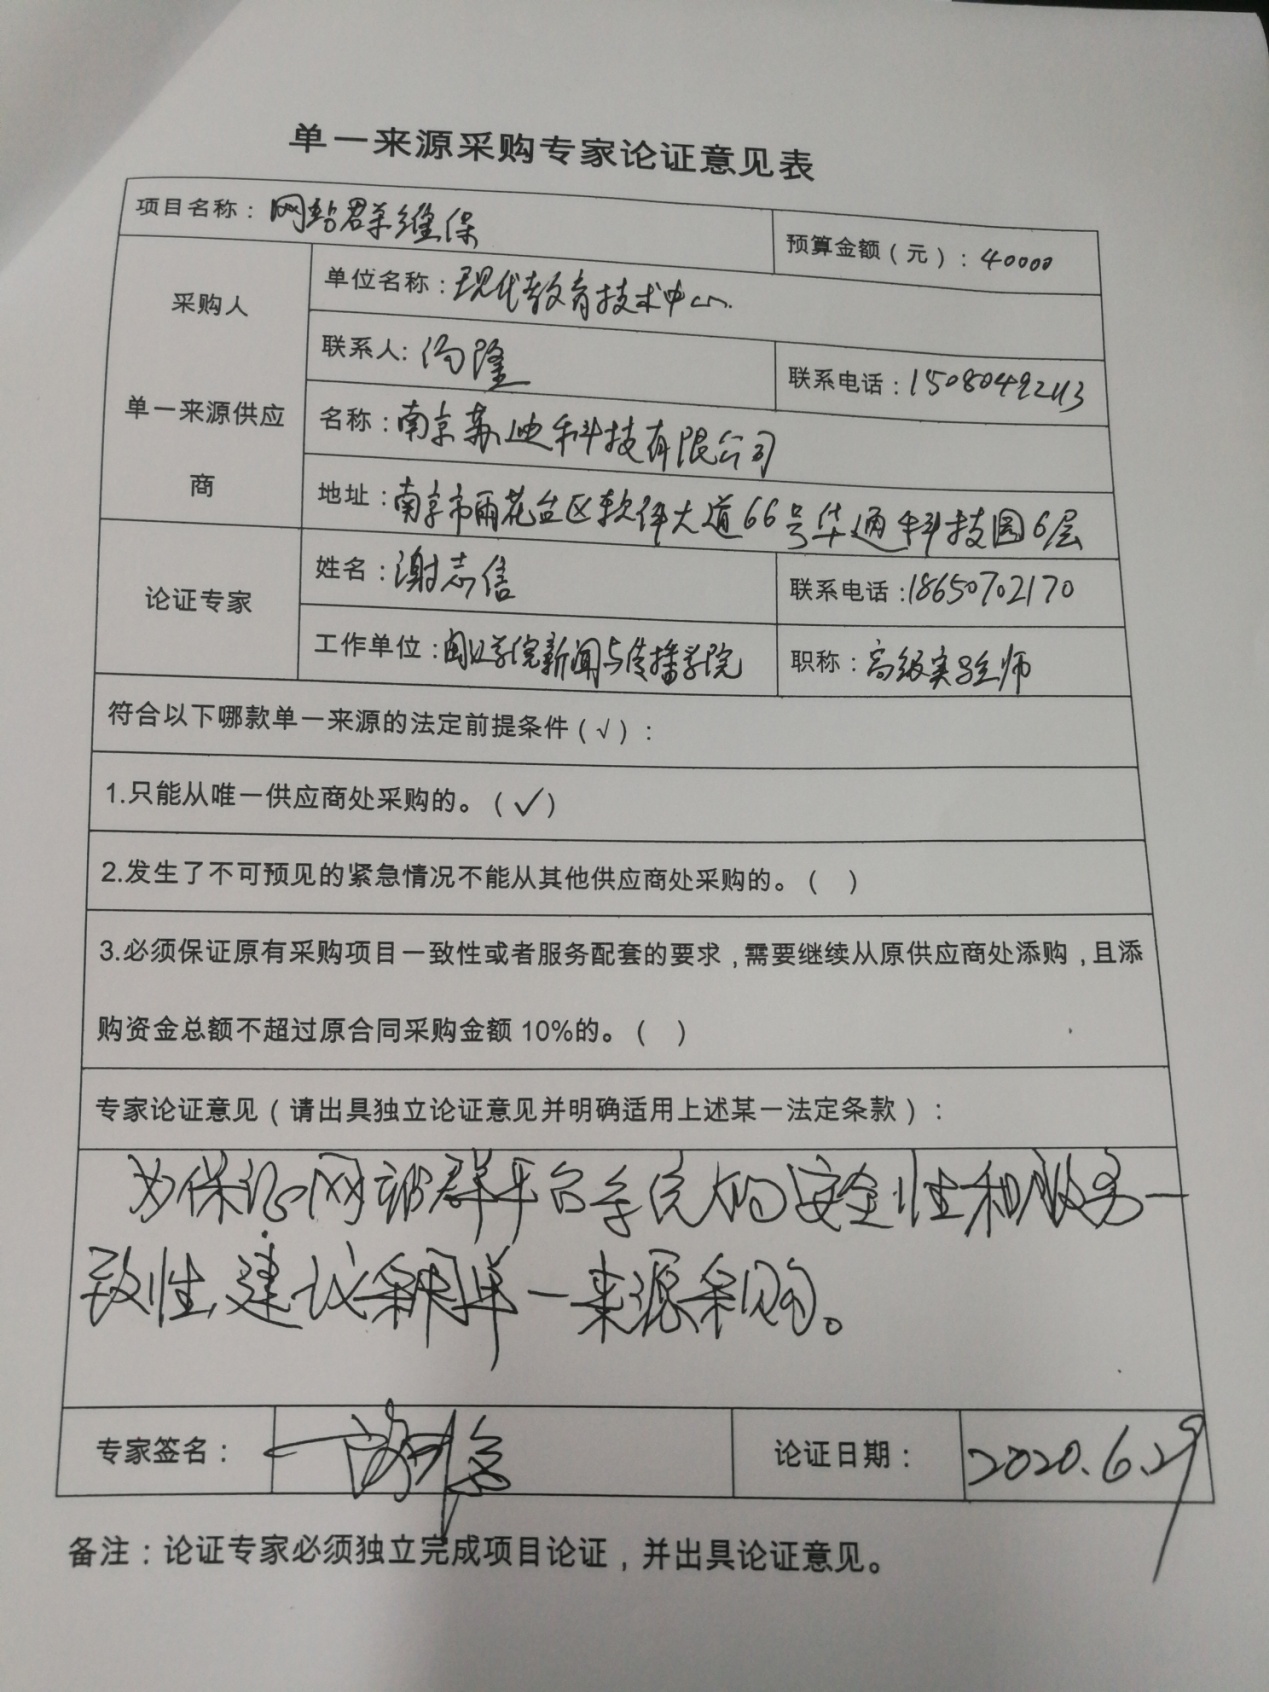 单一来源采购专家论证意见表
项目名称：网站群维保
预算金额（元）：40000
采购人
单位名称：现代教育技术中心
联系人:
隆
联系电话：15080492413
单一来源供应商
名称：南京苏迪科技有限公司
地址：南京市雨花台区软件大道66号华通科技园6层
论证专家
姓名：谢志信
联系电话:18650702170
工作单位：闽江学院新闻与传播学院
职称：高级实验师
符合以下哪款单一来源的法定前提条件（√）：
1.只能从唯一供应商处采购的。（✓）
2.发生了不可预见的紧急情况不能从其他供应商处采购的。（ ）
3.必须保证原有采购项目一致性或者服务配套的要求，需要继续从原供应商处添购，且添
购资金总额不超过原合同采购金额 10%的。（ ）
专家论证意见（请出具独立论证意见并明确适用上述某一法定条款）：
为保证网站群平台系统的安全性和服务一
致性，建议采用单一来源采购。
专家签名：
论证日期：
2020.6.29
备注：论证专家必须独立完成项目论证，并出具论证意见。